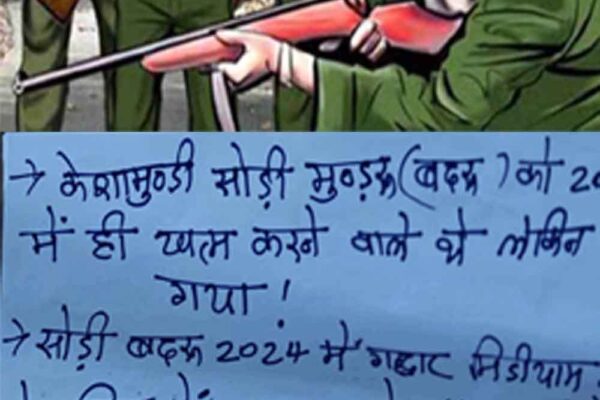 → केशामुण्डी सोड़ी मुण्ड्रू (बदरू) को 20
में ही खत्म करने वाले थे लेकिन
गया!
→ सोड़ी बदरू 2024 में गद्दार मिडीयाम